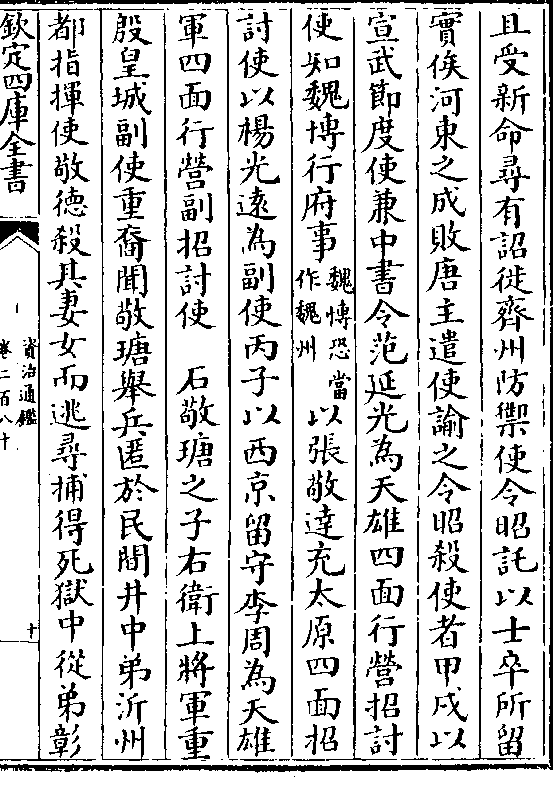 且受新命尋有詔徙齊州防禦使令昭託以士卒所留
實俟河東之成敗唐主遣使諭之令昭殺使者甲戌以
宣武節度使兼中書令范延光為天雄四面行營招討
使知魏博行府事魏博恐當作魏州以張敬達充太原四面招
討使以楊光遠為副使丙子以西京留守李周為天雄
軍四面行營副招討使　石敬瑭之子右衛上將軍重
殷皇城副使重裔聞敬瑭舉兵匿於民間井中弟沂州
都指揮使敬德殺其妻女而逃尋捕得死獄中從弟彰
欽定四庫全書
資治通鑑
卷二百八十
十